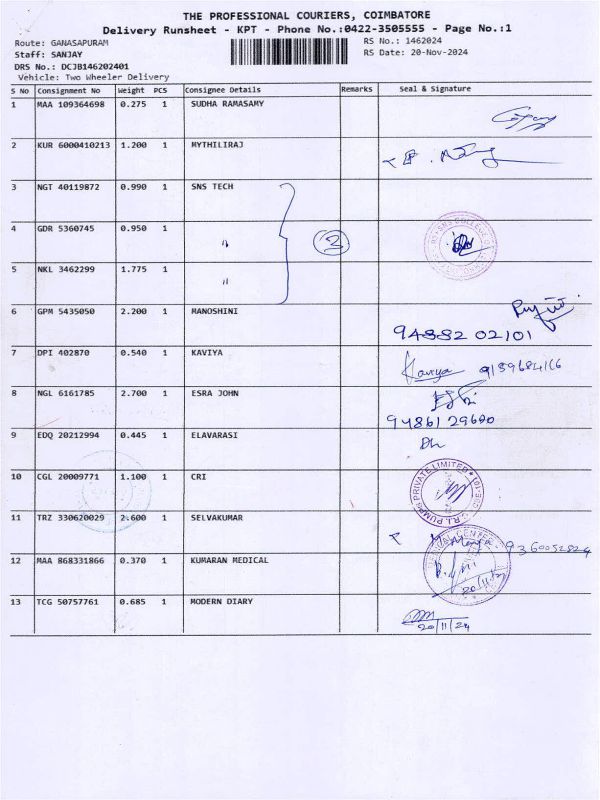 THE PROFESSIONAL COURIERS, COIMBATORE
Delivery Runsheet - KPT - Phone No.:0422-3505555 - Page No.:1
Route: GANASAPURAM RS No.: 1462024
Staff: SANJAY RS Date: 20-Nov-2024
DRS No.: DCJB146202401
Vehicle: Two Wheeler Delivery
S No Consignment No Weight PCS Consignee Details Remarks Seal & Signature
1 MAA 109364698 0.275 1 SUDHA RAMASAMY
2 KUR 6000410213 1.200 1 MYTHILIRAJ
3 NGT 40119872 0.990 1 SNS TECH
4 GDR 5360745 0.950 1 " 3
5 NKL 3462299 1.775 1 "
6 GPM 5435050 2.200 1 MANOSHINI
94882 02101
7 DPI 402870 0.540 1 KAVIYA Kaviya
8 NGL 6161785 2.700 1 ESRA JOHN
94861 29690
9 EDQ 20212994 0.445 1 ELAVARASI
10 CGL 20009771 1.100 1 CRI
C.R.I. PUMPS PRIVATE LIMITED
11 TRZ 330620029 2.600 1 SELVAKUMAR
12 MAA 868331866 0.370 1 KUMARAN MEDICAL
20/11/24
13 TCG 50757761 0.685 1 MODERN DIARY
20/11/24